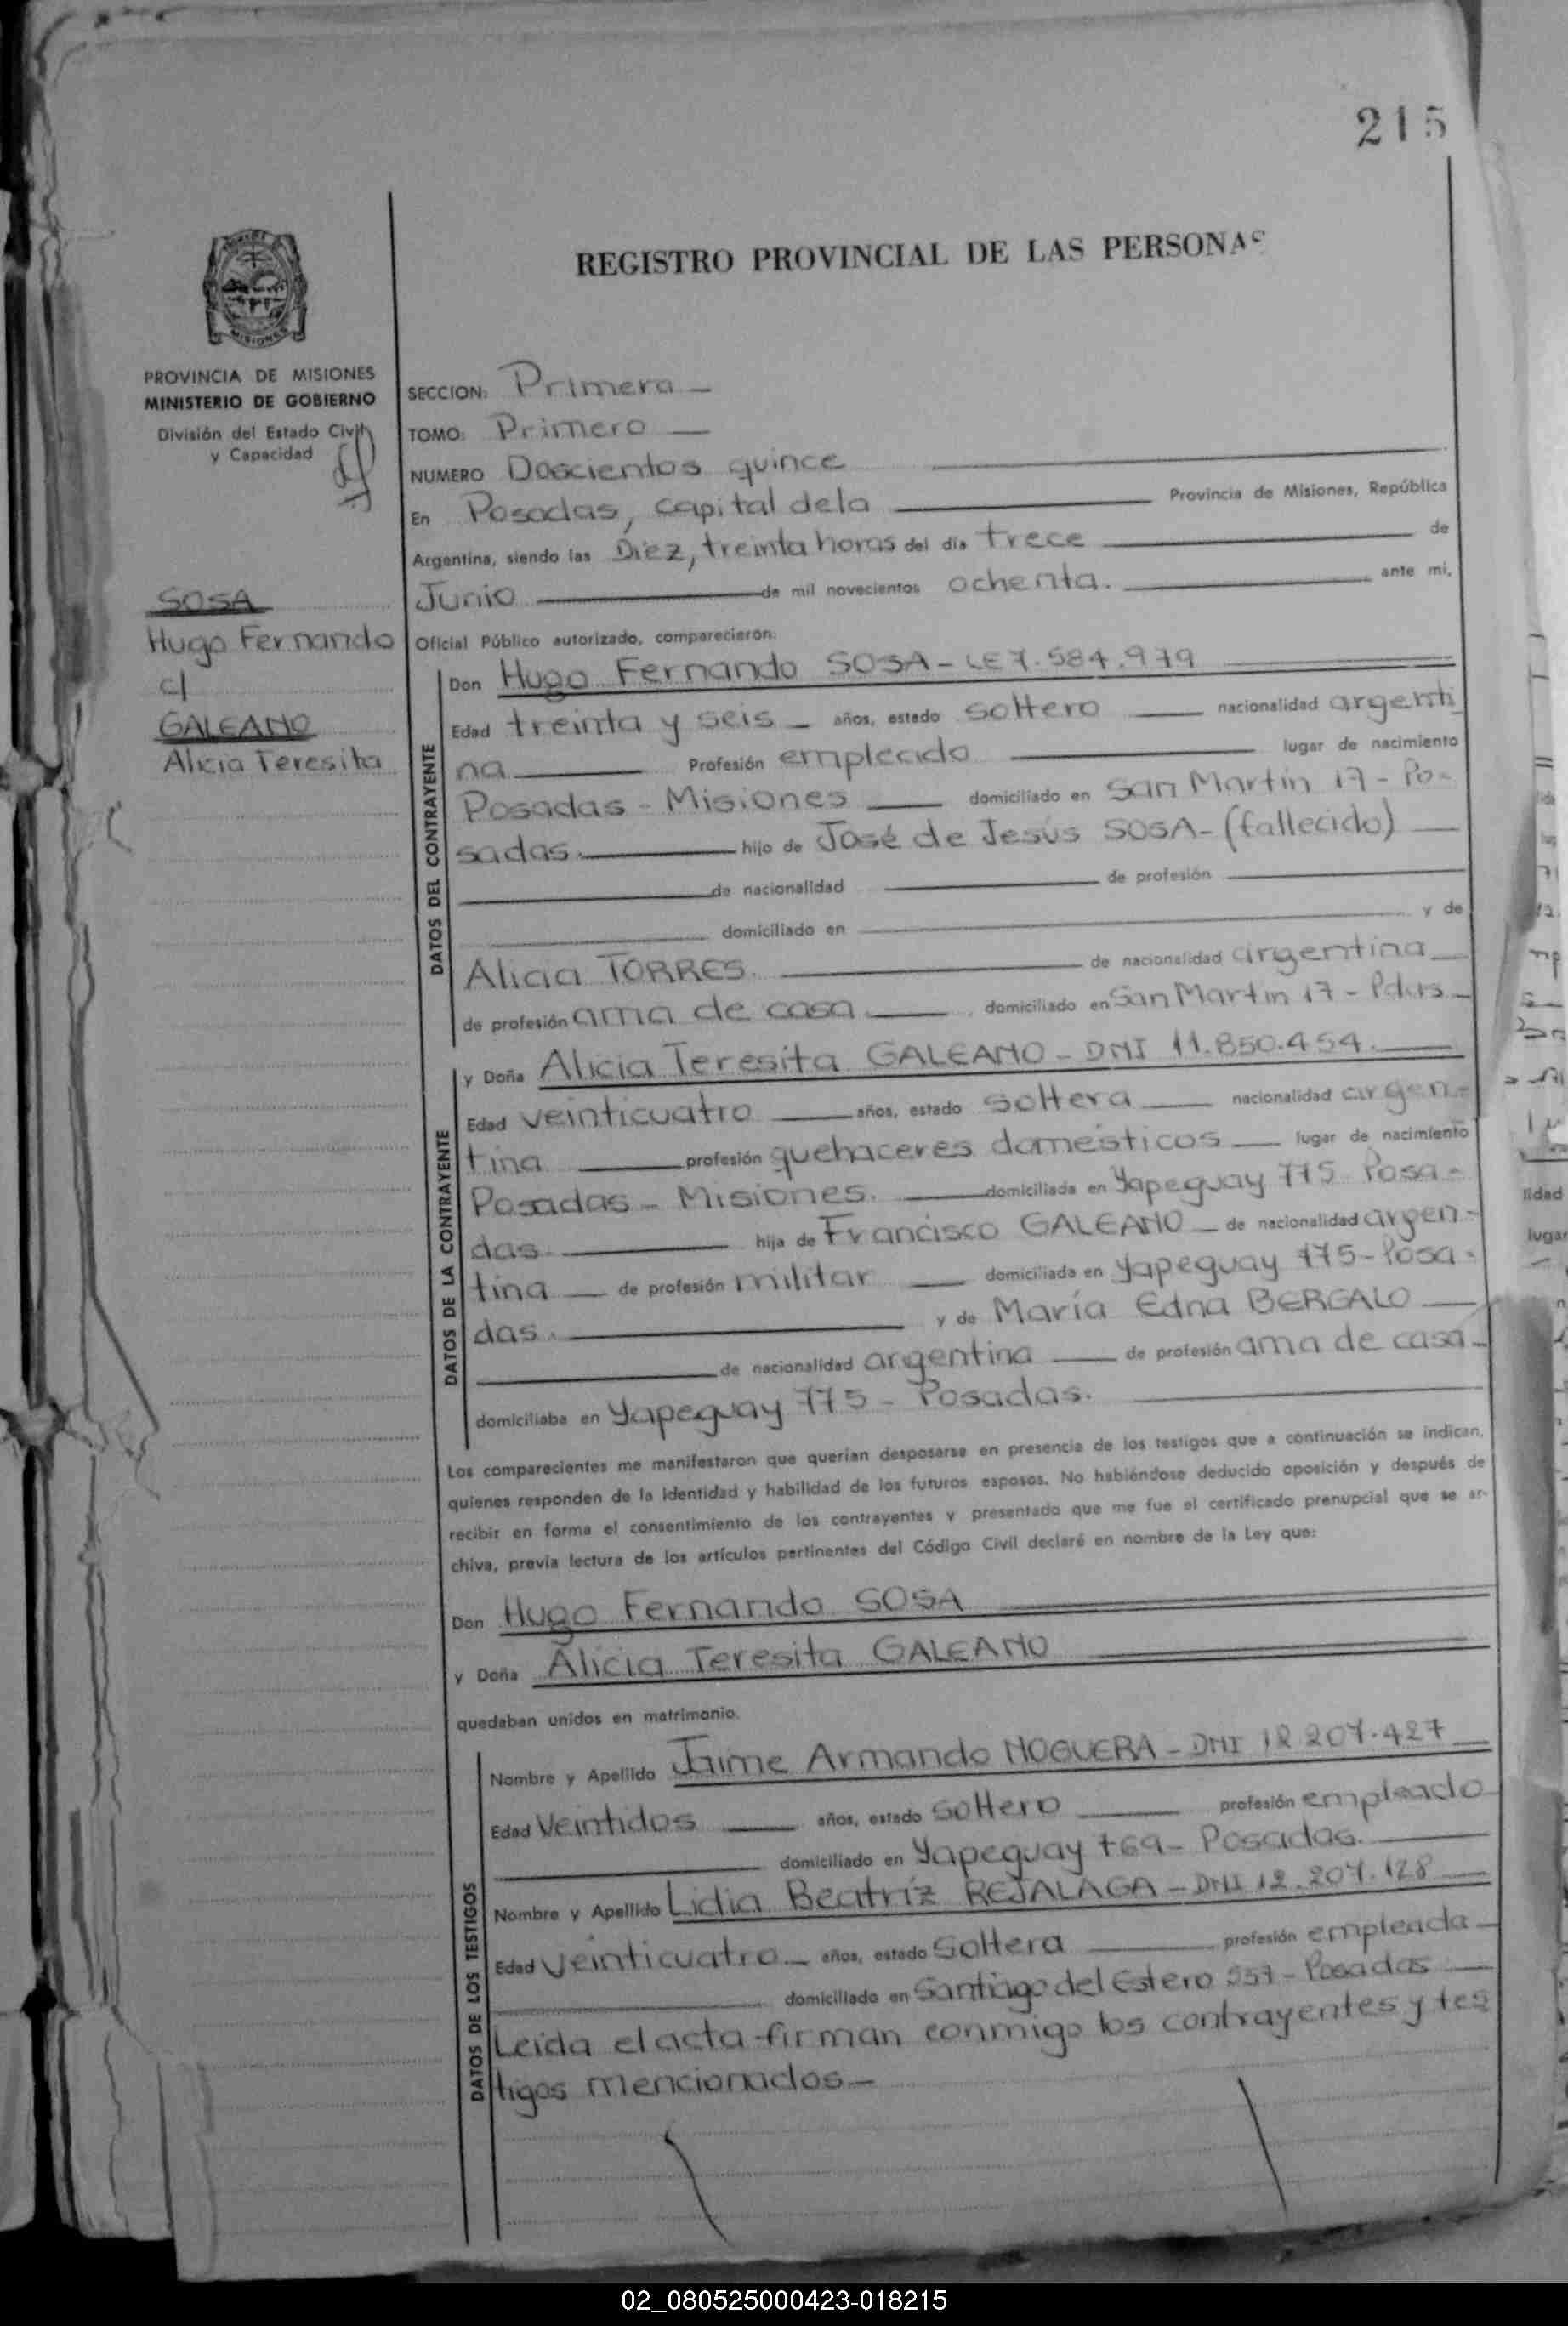 215
REGISTRO PROVINCIAL DE LAS PERSONAS
MISIONES
PROVINCIA DE MISIONES
MINISTERIO DE GOBIERNO
División del Estado Civil
y Capacidad
SOSA
Hugo Fernando
c/
GALEANO
Alicia Teresita
SECCION: Primera -
TOMO: Primero -
NUMERO Doscientos quince
En Posadas, capital de la Provincia de Misiones, República
Argentina, siendo las Diez, treinta horas del día trece de
Junio de mil novecientos ochenta. ante mi,
Oficial Público autorizado, comparecieron:
DATOS DEL CONTRAYENTE
Don Hugo Fernando SOSA - LE 7.584.979
Edad treinta y seis - años, estado soltero nacionalidad argenti
na Profesión empleado lugar de nacimiento
Posadas - Misiones domiciliado en San Martín 17 - Po-
sadas. hijo de José de Jesús SOSA - (fallecido)
de nacionalidad de profesión
domiciliado en y de
Alicia TORRES. de nacionalidad argentina
de profesión ama de casa domiciliado en San Martin 17 - Pdas.
DATOS DE LA CONTRAYENTE
y Doña Alicia Teresita GALEANO - DNI 11.850.454.
Edad veinticuatro años, estado soltera nacionalidad argen-
tina profesión quehaceres domésticos lugar de nacimiento
Posadas - Misiones. domiciliada en Yapeguay 775 Posa-
das. hija de Francisco GALEANO - de nacionalidad argen-
tina de profesión militar domiciliada en Yapeguay 775 - Posa-
das. y de María Edna BERGALO
de nacionalidad argentina de profesión ama de casa
domiciliaba en Yapeguay 775 - Posadas.
Los comparecientes me manifestaron que querían desposarse en presencia de los testigos que a continuación se indican,
quienes responden de la identidad y habilidad de los futuros esposos. No habiéndose deducido oposición y después de
recibir en forma el consentimiento de los contrayentes y presentado que me fue el certificado prenupcial que se ar-
chiva, previa lectura de los artículos pertinentes del Código Civil declaré en nombre de la Ley que:
Don Hugo Fernando SOSA
y Doña Alicia Teresita GALEANO
quedaban unidos en matrimonio.
DATOS DE LOS TESTIGOS
Nombre y Apellido Jaime Armando NOGUERA - DNI 12.207.427
Edad Veintidos años, estado soltero profesión empleado
domiciliado en Yapeguay 769 - Posadas.
Nombre y Apellido Lidia Beatríz REJALAGA - DNI 12.207.128
Edad veinticuatro - años, estado soltera profesión empleada
domiciliado en Santiago del Estero 557 - Posadas
Leida el acta firman conmigo los contrayentes y tes
tigos mencionados -
02_080525000423-018215